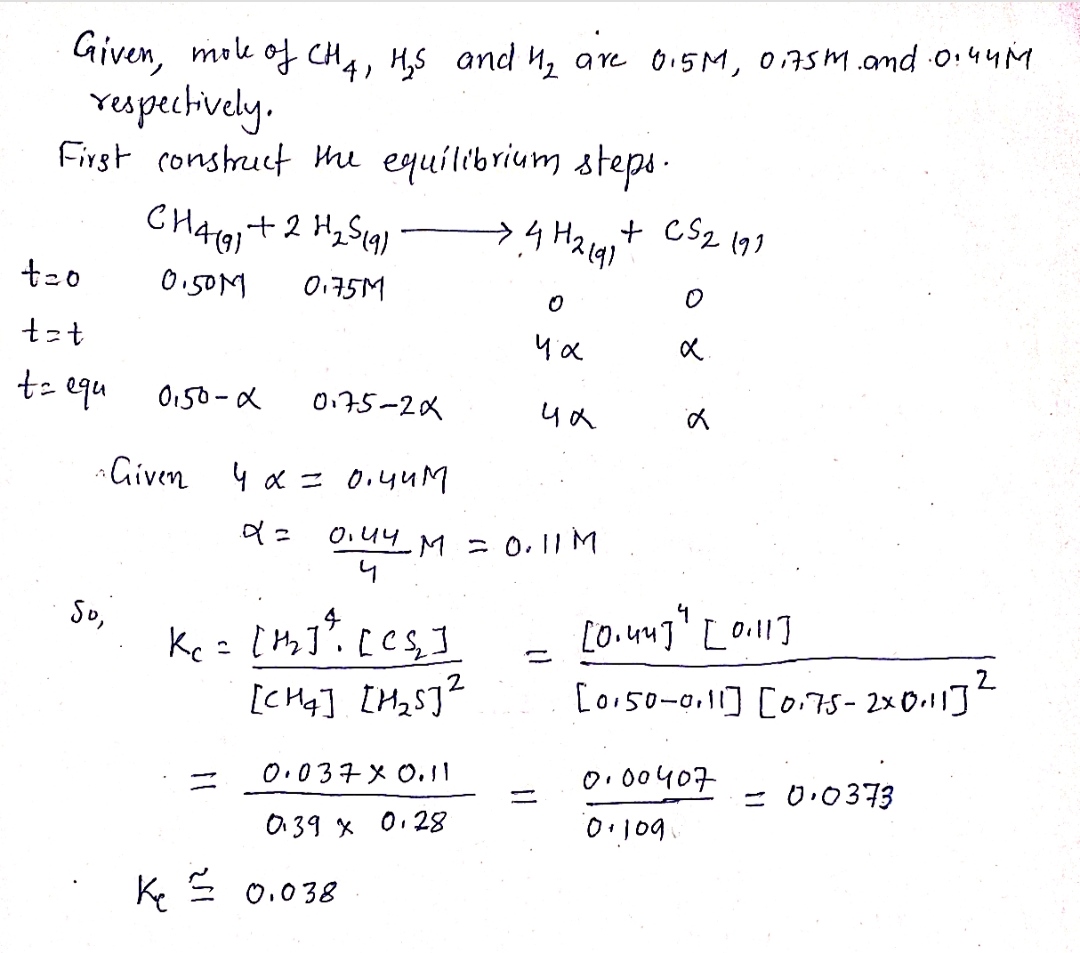 Given, mole of CH4, H2S and H2 are 0.5M, 0.75M and 0.44M
respectively.
First construct the equilibrium steps.
CH4(g) + 2 H2S(g) → 4 H2(g) + CS2 (g)
t=0 0.50M 0.75M 0 0
t=t 4α α
t= equ 0.50-α 0.75-2α 4α α
Given 4α = 0.44M
α = 0.44/4 M = 0.11 M
So, Kc = [H2]^4. [CS2] / [CH4] [H2S]^2 = [0.44]^4 [0.11] / [0.50-0.11] [0.75-2×0.11]^2
= 0.037 × 0.11 / 0.39 × 0.28 = 0.00407 / 0.109 = 0.0373
Kc ≅ 0.038